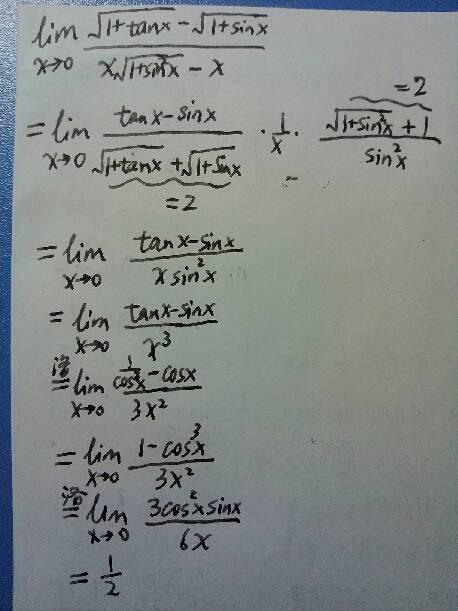 lim x→0 (√(1+tanx) - √(1+sinx)) / (x√(1+sin²x) - x)
= lim x→0 (tanx - sinx) / (√(1+tanx) + √(1+sinx)) · 1/x · (√(1+sin²x) + 1) / sin²x = 2
= 2
= lim x→0 (tanx - sinx) / (x sin²x)
= lim x→0 (tanx - sinx) / x³
洛= lim x→0 (1/cos²x - cosx) / 3x²
= lim x→0 (1 - cos³x) / 3x²
洛= lim x→0 (3cos²x sinx) / 6x
= 1/2